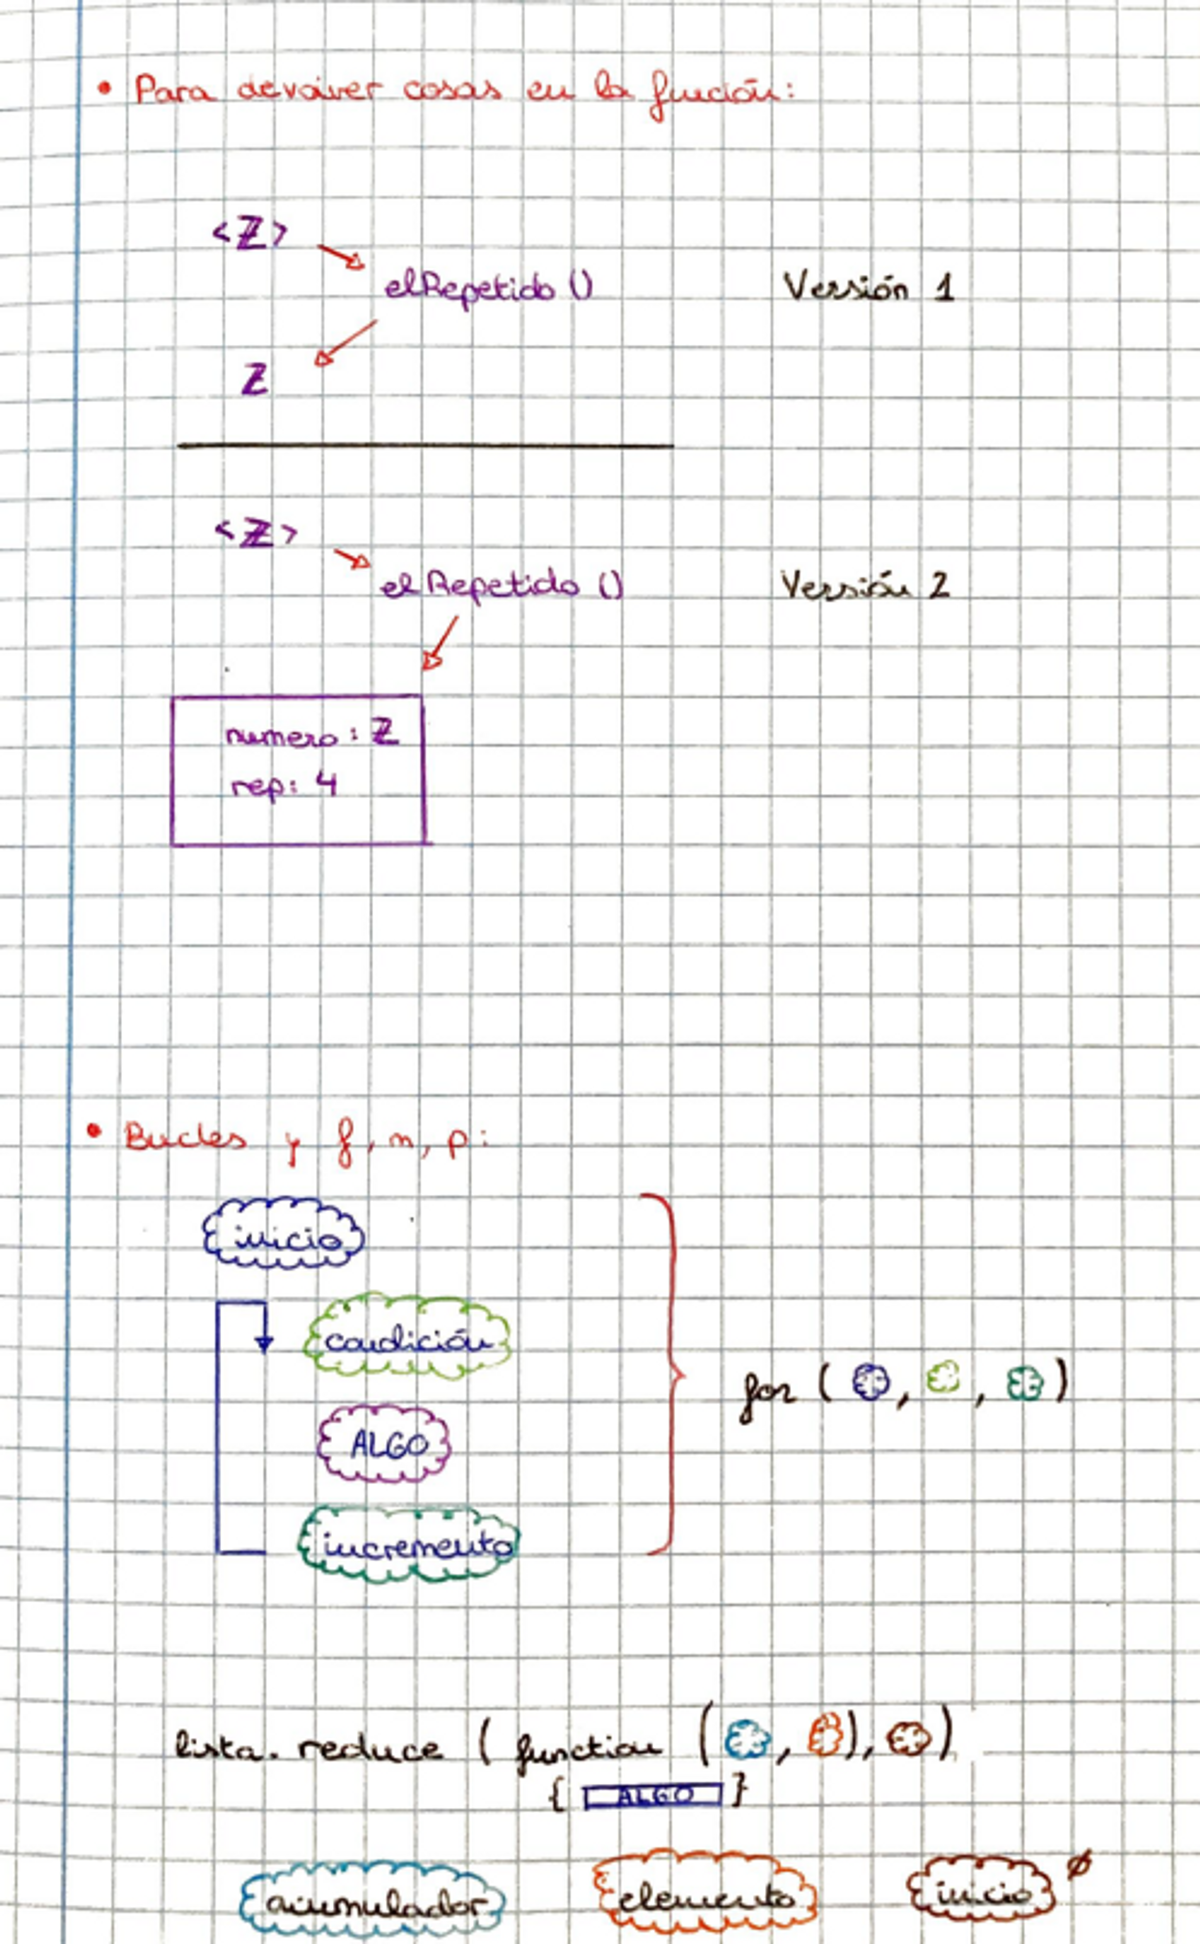 • Para devolver cosas en la función:
<ℤ>
elRepetido () Versión 1
ℤ
<ℤ>
elRepetido () Versión 2
numero: ℤ
rep: 4
• Bucles y f, m, p:
inicio
condición
ALGO
incremento
for ( , , )
lista.reduce ( function ( , ), )
{ ALGO }
acumulador elemento inicio ø